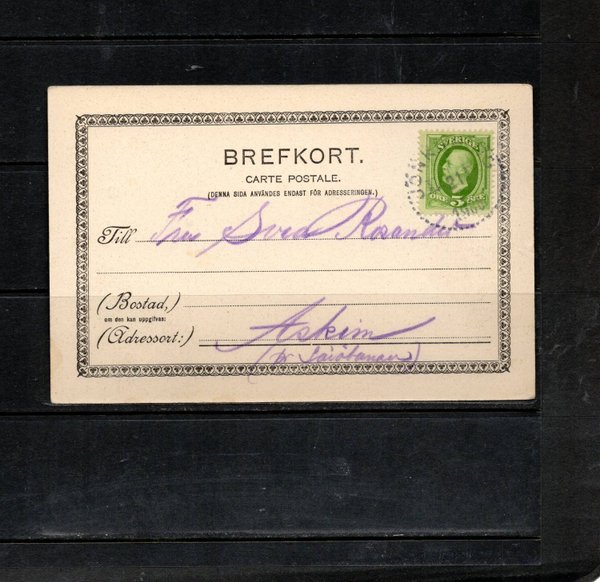 BREFKORT.
CARTE POSTALE.
(DENNA SIDA ANVÄNDES ENDAST FÖR ADRESSERINGEN.)
SVERIGE
ÖRE 5 ÖRE
Till Fru Svea Rosander
(Bostad,)
om den kan uppgifvas:
(Adressort:) Askim
(pr